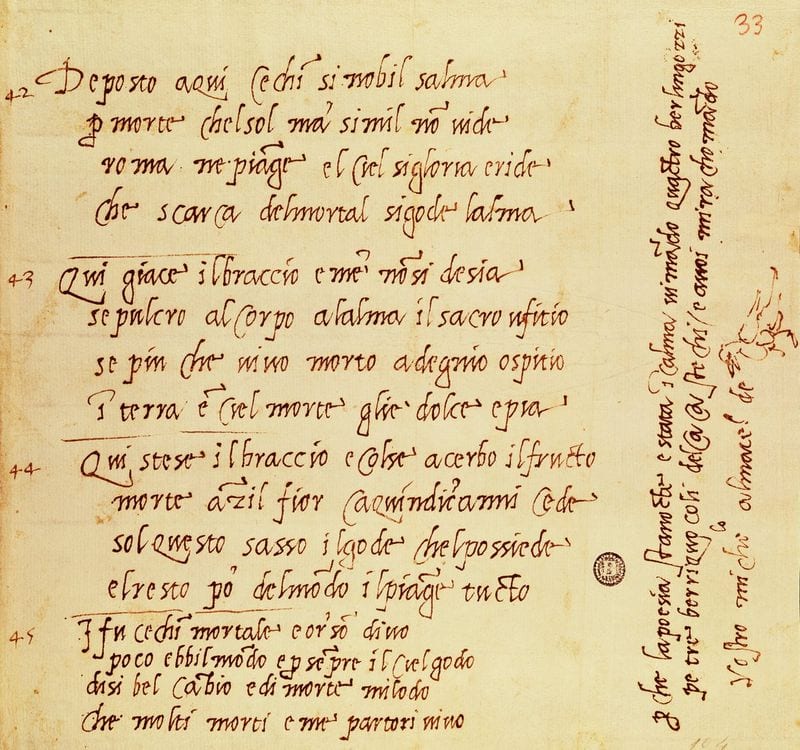 33
42 Deposto a qui cechĩ si nobil salma
p morte chel sol ma simil nõ vide
roma ne piãge el ciel si gloria e ride
che scarca del mortal si gode lalma
43 Qui giace il braccio e me nõ si desia
sepulcro al corpo a lalma il sacro ufitio
se piu che vivo morto a degnio ospitio
ĩ terra e ĩ ciel morte glie dolce e pia
44 Qui stese il braccio e colse acerbo il fructo
morte ãzil fior ca quindici anni cede
sol questo sasso il gode chel possiede
el resto po del mõdo il piãge tucto
45 I fu cechĩ mortale e or sõ divo
poco ebbil mõdo e p sẽpre il ciel godo
di si bel cãbio e di morte mi lodo
che molti morti e me partori vivo
p che la poesia stanocte e stata ĩ calma vi mãdo quactro berlingozzi
pe tre berriquocoli del cacastechi / e a voi mi rachomãdo
Vostro michelo al macel de